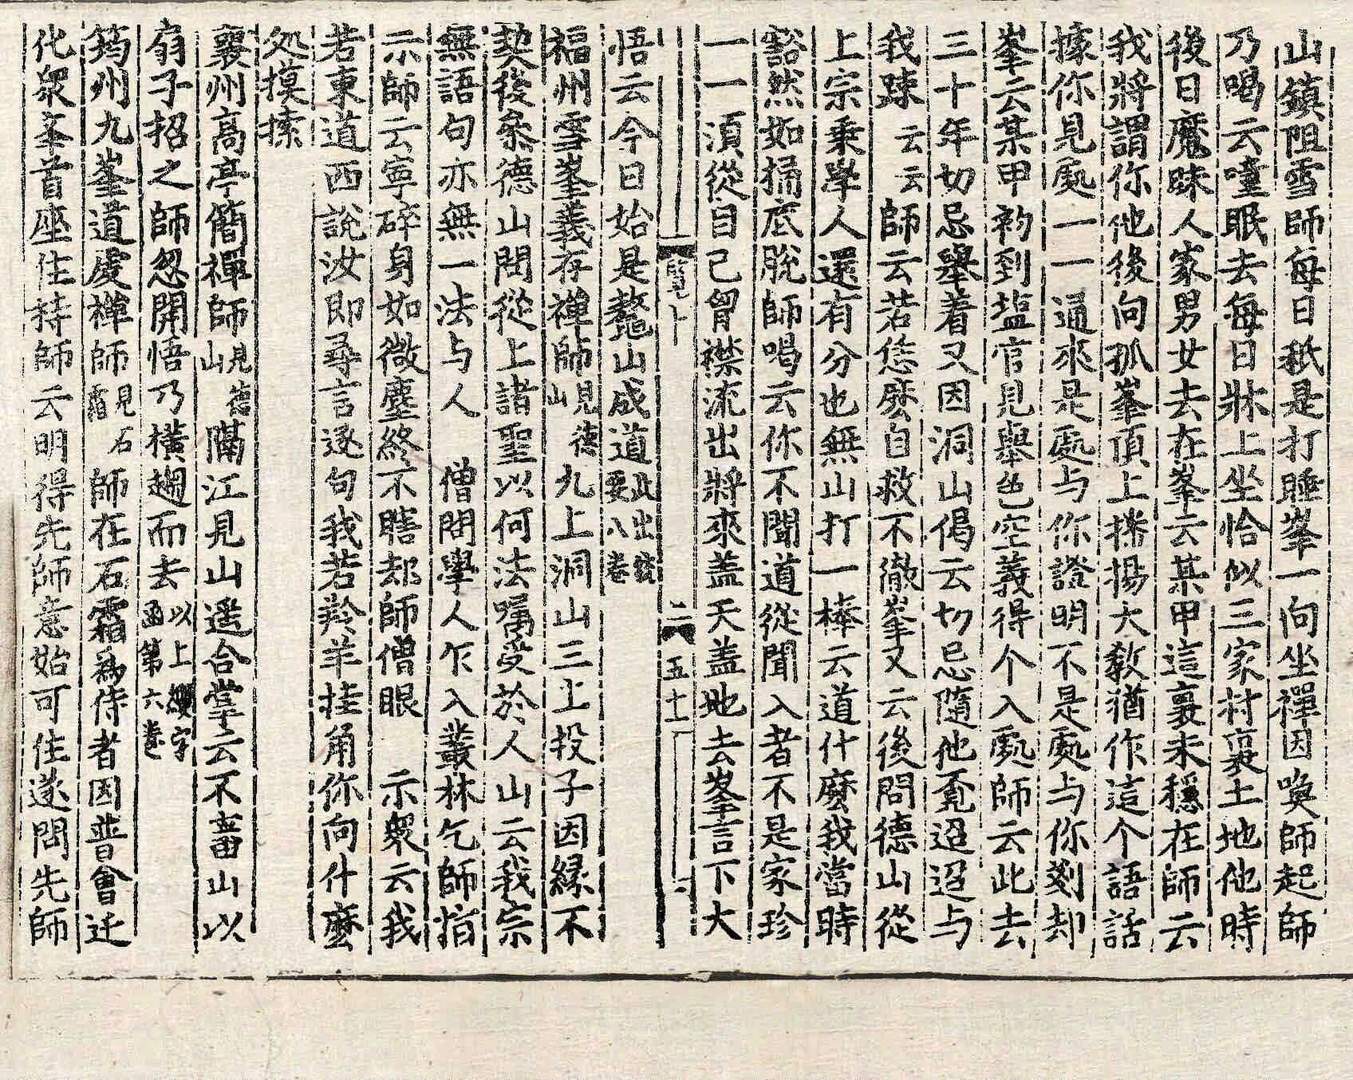 山鎮阻雪師每日秪是打睡峯一向坐禪因喚師起師
乃喝云噇眠去每日牀上坐恰似三家村裏土地他時
後日魔昧人家男女去在峯云某甲這裏未穩在師云
我將謂你他後向孤峯頂上播揚大教猶作這个語話
據你見處一一通來是處与你證明不是處与你剗却
峯云某甲初到塩官見舉色空義得个入處師云此去
三十年切忌舉着又因洞山偈云切忌隨他覔迢迢与
我踈云云師云若恁麽自救不徹峯又云後問德山從
上宗乗學人還有分也無山打一棒云道什麽我當時
豁然如桶底脫師喝云你不聞道從聞入者不是家珍
一一須從自己胷襟流出將來盖天盖地去峯言下大
二 五十一
悟云今日始是鰲山成道此出統要八卷
福州雪峯義存禪師見德山九上洞山三上投子因縁不
契後叅德山問從上諸聖以何法嘱受於人山云我宗
無語句亦無一法与人 僧問學人乍入叢林乞師指
示師云寧碎身如微塵終不瞎却師僧眼 示衆云我
若東道西說汝即尋言逐句我若羚羊挂角你向什麽
処摸㨿
襄州高亭簡禪師見德山隔江見山遥合掌云不審山以
扇子招之師忽開悟乃橫趨而去以上纓字函第六卷
筠州九峯道虔禪師見石霜師在石霜為侍者因普會迁
化衆峯首座住持師云明得先師意始可住遂問先師